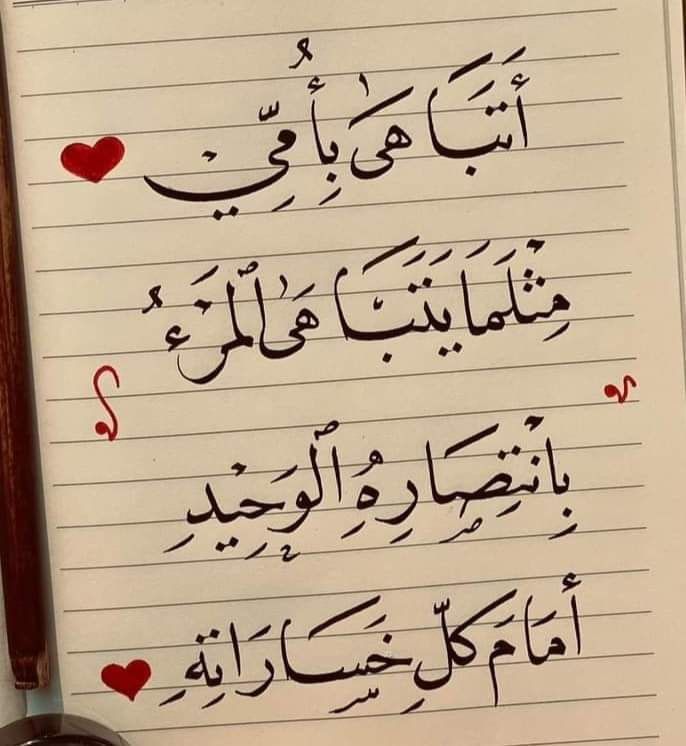 أَتَبَاهَىٰ بِأُمِّيْ
مِثْلَمَا يَتَبَاهَىٰ ٱلْمَرْءُ
بِٱنْتِصَارِهِ ٱلْوَحِيْدِ
أَمَامَ كُلِّ خَسَارَاتِهِ